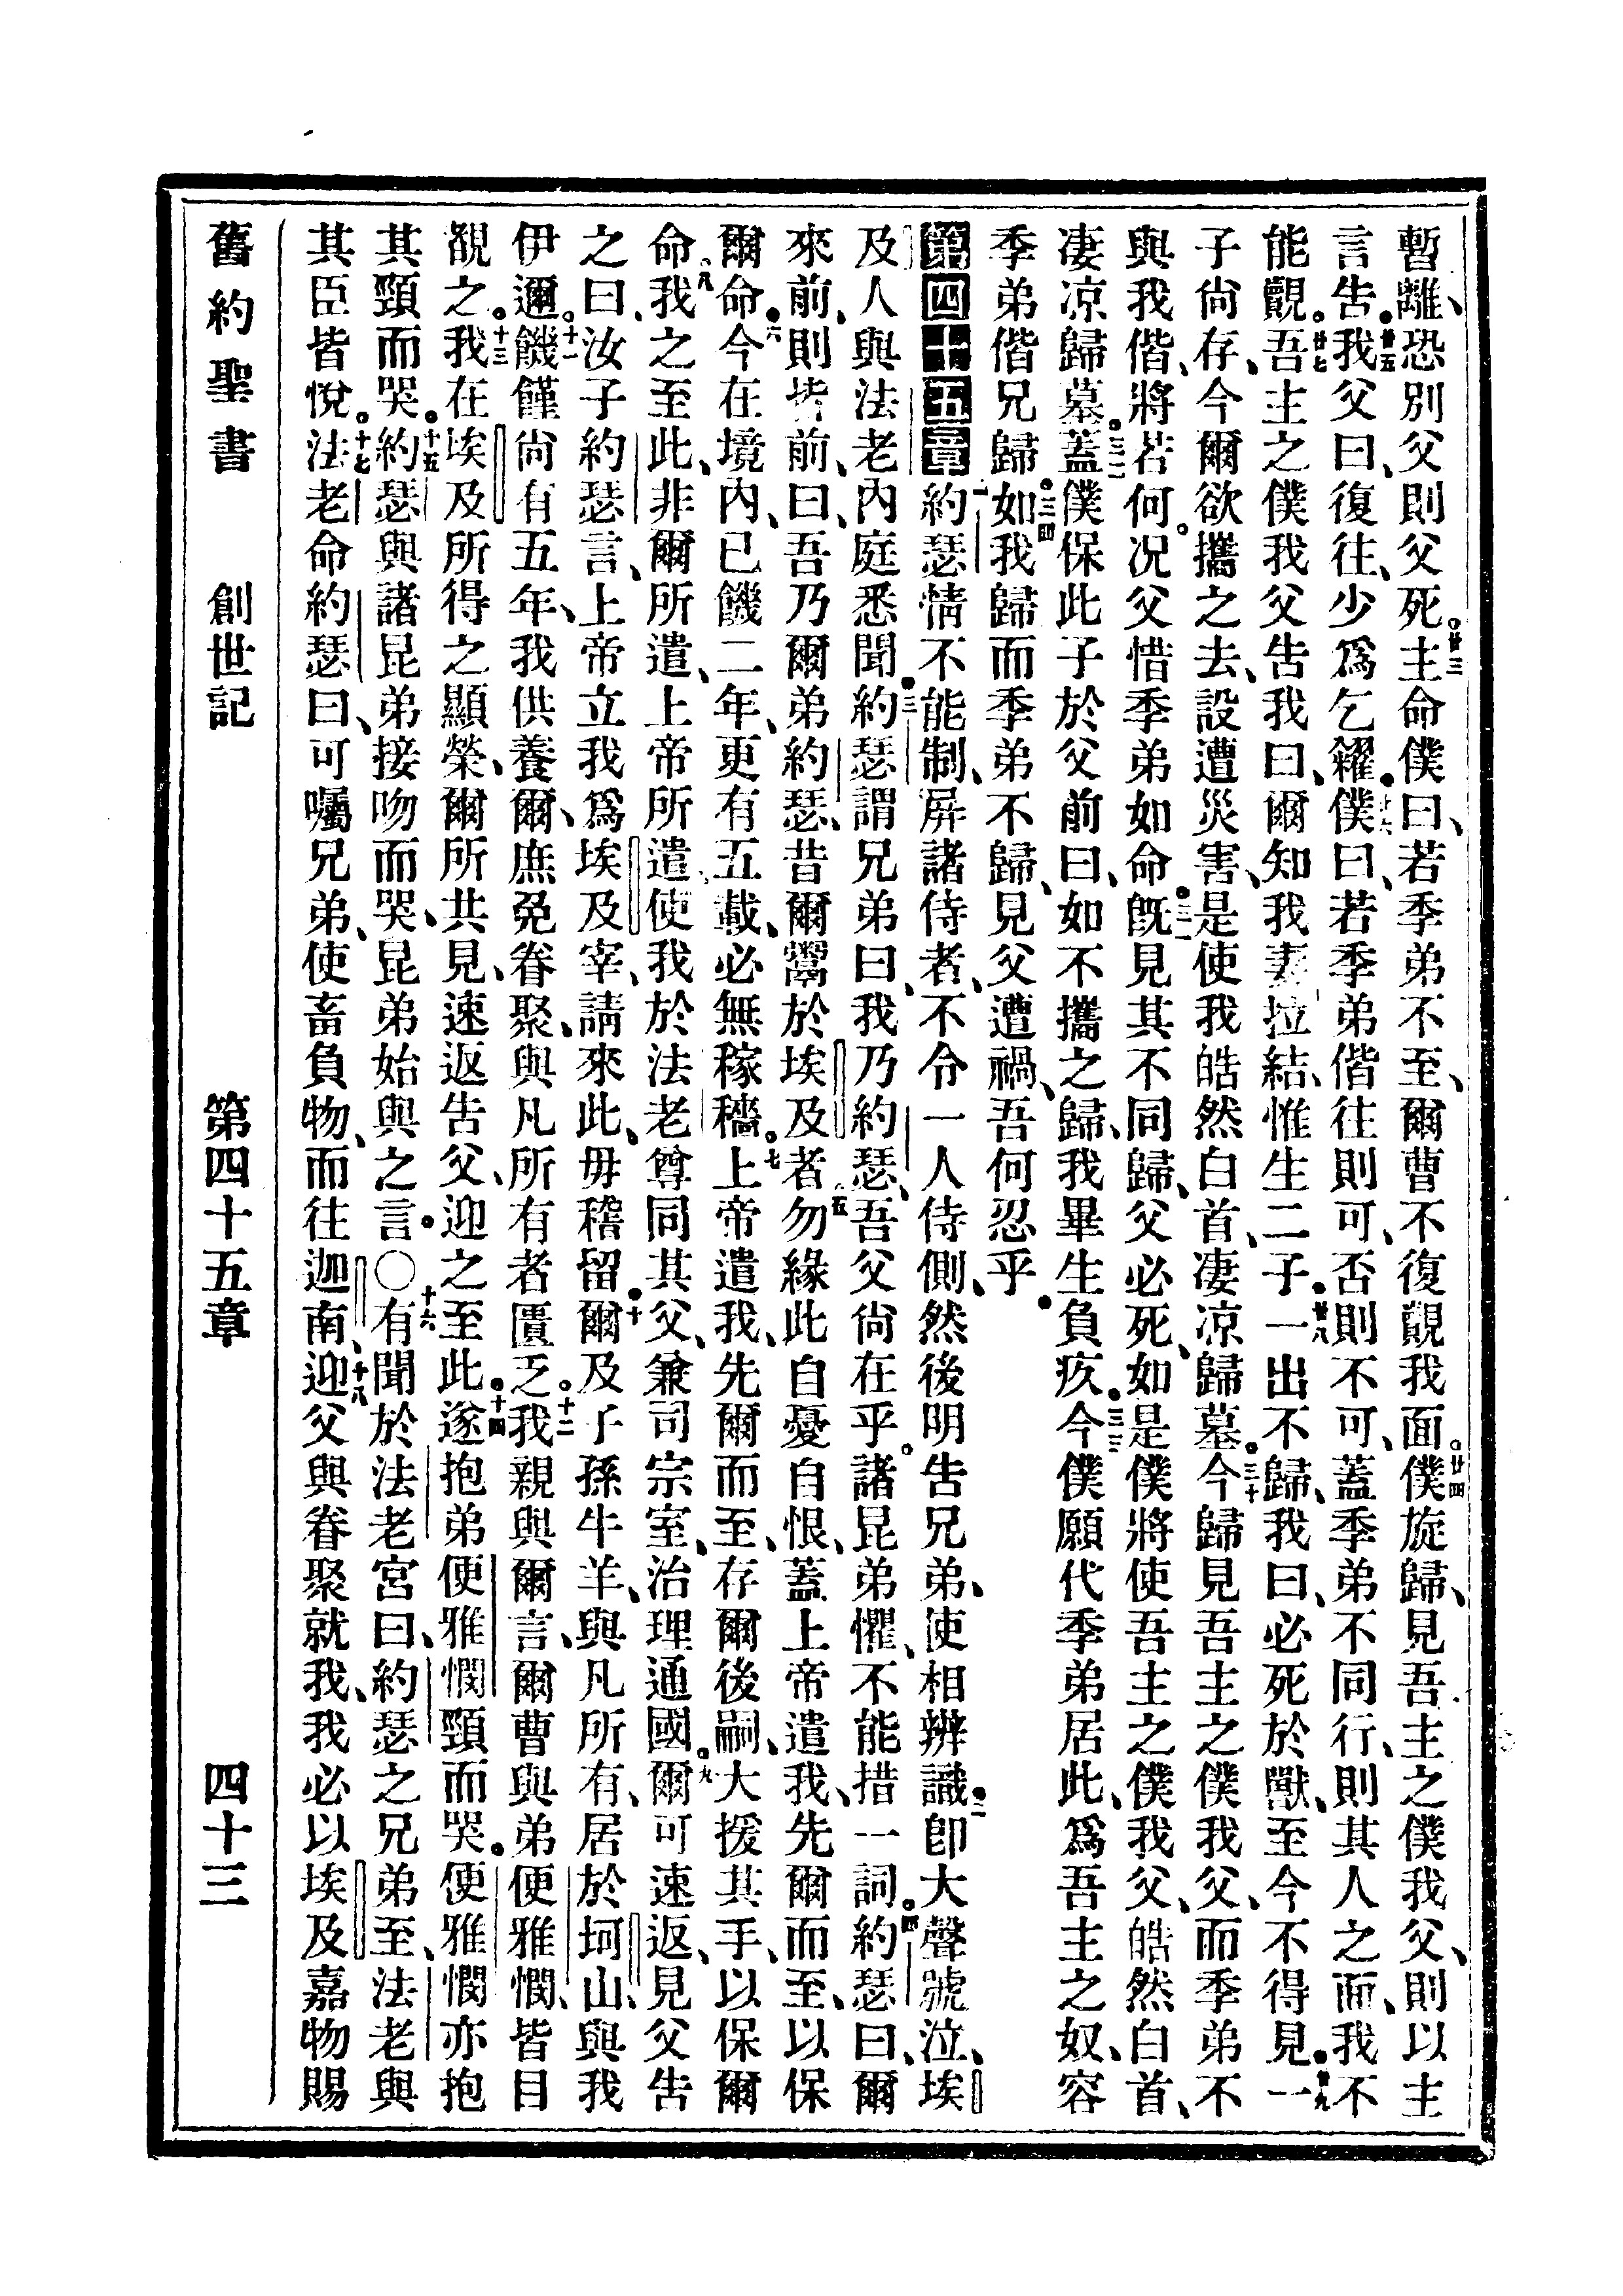 暫離、恐別父則父死。廿三主命僕曰、若季弟不至、爾曹不復覿我面。廿四僕旋歸、見吾主之僕我父、則以主
言告。廿五我父曰、復往、少爲乞糴。廿六僕曰、若季弟偕往則可、否則不可、蓋季弟不同行、則其人之面、我不
能覿。廿七吾主之僕我父告我曰、爾知我妻拉結、惟生二子。廿八一出不歸、我曰、必死於獸、至今不得見。廿九一
子尙存、今爾欲攜之去、設遭災害、是使我皓然白首、凄凉歸墓。三十今歸見吾主之僕我父、而季弟不
與我偕、將若何。况父惜季弟如命。三一旣見其不同歸、父必死、如是僕將使吾主之僕我父、皓然白首、
凄凉歸墓。三二蓋僕保此子於父前曰、如不攜之歸、我畢生負疚。三三今僕願代季弟居此、爲吾主之奴、容
季弟偕兄歸。三四如我歸而季弟不歸、見父遭禍、吾何忍乎。
第四十五章 一約瑟情不能制、屏諸侍者、不令一人侍側、然後明告兄弟、使相辨識。二卽大聲號泣、埃
及人與法老內庭悉聞。三約瑟謂兄弟曰、我乃約瑟、吾父尙在乎。諸昆弟懼、不能措一詞。四約瑟曰、爾
來前、則皆前、曰、吾乃爾弟約瑟、昔爾鬻於埃及者。五勿緣此自憂自恨、蓋上帝遣我、先爾而至、以保
爾命。六今在境內、已饑二年、更有五載、必無稼穡。七上帝遣我、先爾而至、存爾後嗣、大援其手、以保爾
命。八我之至此、非爾所遣、上帝所遣、使我於法老尊同其父、兼司宗室、治理通國。九爾可速返、見父告
之曰、汝子約瑟言、上帝立我爲埃及宰、請來此、毋稽留。十爾及子孫牛羊、與凡所有、居於坷山、與我
伊邇。十一饑饉尙有五年、我供養爾、庶免眷聚、與凡所有者匱乏。十二我親與爾言、爾曹與弟便雅憫、皆目
覩之。十三我在埃及所得之顯榮、爾所共見、速返告父、迎之至此。十四遂抱弟便雅憫頸而哭。便雅憫亦抱
其頸而哭。十五約瑟與諸昆弟接吻而哭、昆弟始與之言。〇十六有聞於法老宮曰、約瑟之兄弟至、法老與
其臣皆悅。十七法老命約瑟曰、可囑兄弟、使畜負物、而往迦南、十八迎父與眷聚就我、我必以埃及嘉物賜
舊約聖書 創世記 第四十五章 四十三